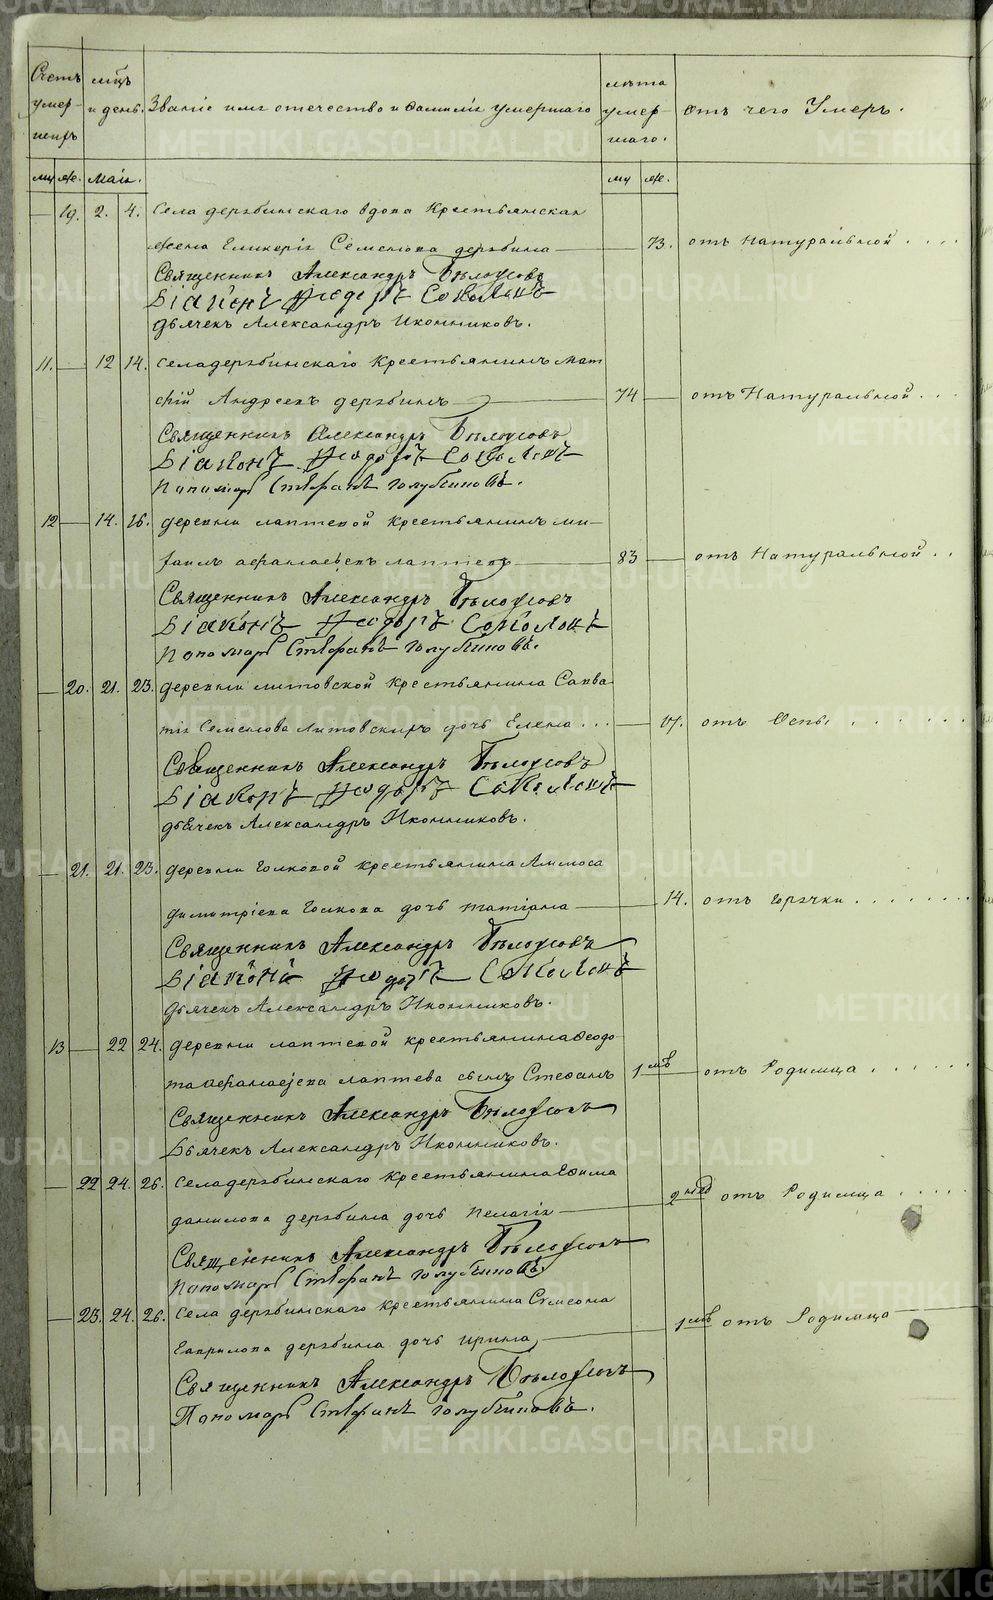 Счетъ умер- шихъ
мцъ и день.
Званіе имя отечество и фамилія умершаго
лѣта умер- шаго.
отъ чего Умеръ.
му же. Маія. му же.
19. 2. 4. Села дерябинскаго вдова Крестьянская
жена Гликерія Семенова дерябина 73. отъ Натуральной . . . .
Священникъ Александръ Бѣлоусовъ
Діаконъ Ѳеодоръ Соколовъ
дьячекъ Александръ Иконниковъ.
11. 12 14. села дерябинскаго Крестьянинъ Мат
ѳій Андреевъ дерябинъ 74 отъ Натуральной . . .
Священникъ Александръ Бѣлоусовъ
Діаконъ Ѳеодоръ Соколовъ
Пономарь Стефанъ Голубчиковъ.
12 14. 16. деревни лаптевой Крестьянинъ ми-
хаилъ афанасьевъ лаптевъ 83 отъ Натуральной . .
Священникъ Александръ Бѣлоусовъ
Діаконъ Ѳеодоръ Соколовъ
Пономарь Стефанъ Голубчиковъ.
20. 21. 23. деревни литовской Крестьянина Савва
тія Семенова литовскихъ дочь Елена . . . 17. отъ Оспы . . . . . .
Священникъ Александръ Бѣлоусовъ
Діаконъ Ѳеодоръ Соколовъ
дьячекъ Александръ Иконниковъ.
21. 21. 23. деревни Голковой Крестьянина Амоса
димитріева Голкова дочь татіана 14. отъ горячки . . . . . . .
Священникъ Александръ Бѣлоусовъ
Діаконъ Ѳеодоръ Соколовъ
дьячекъ Александръ Иконниковъ.
13 22 24. деревни лаптевой крестьянина Ѳеодо
та афанасьева лаптева сынъ Стефанъ 1 мѣ отъ Родимца . . . . . .
Священникъ Александръ Бѣлоусовъ
Дьячекъ Александръ Иконниковъ.
22 24. 26. Села дерябинскаго Крестьянина Ефима
данилова дерябина дочь Пелагія 2 нед отъ Родимца . . . . .
Священникъ Александръ Бѣлоусовъ
Пономарь Стефанъ Голубчиковъ.
23. 24. 26. Села дерябинскаго крестьянина Симеона
Гаврилова дерябина дочь ирина 1 мѣ отъ Родимца
Священникъ Александръ Бѣлоусовъ
Пономарь Стефанъ Голубчиковъ.
METRIKI.GASO-URAL.RU